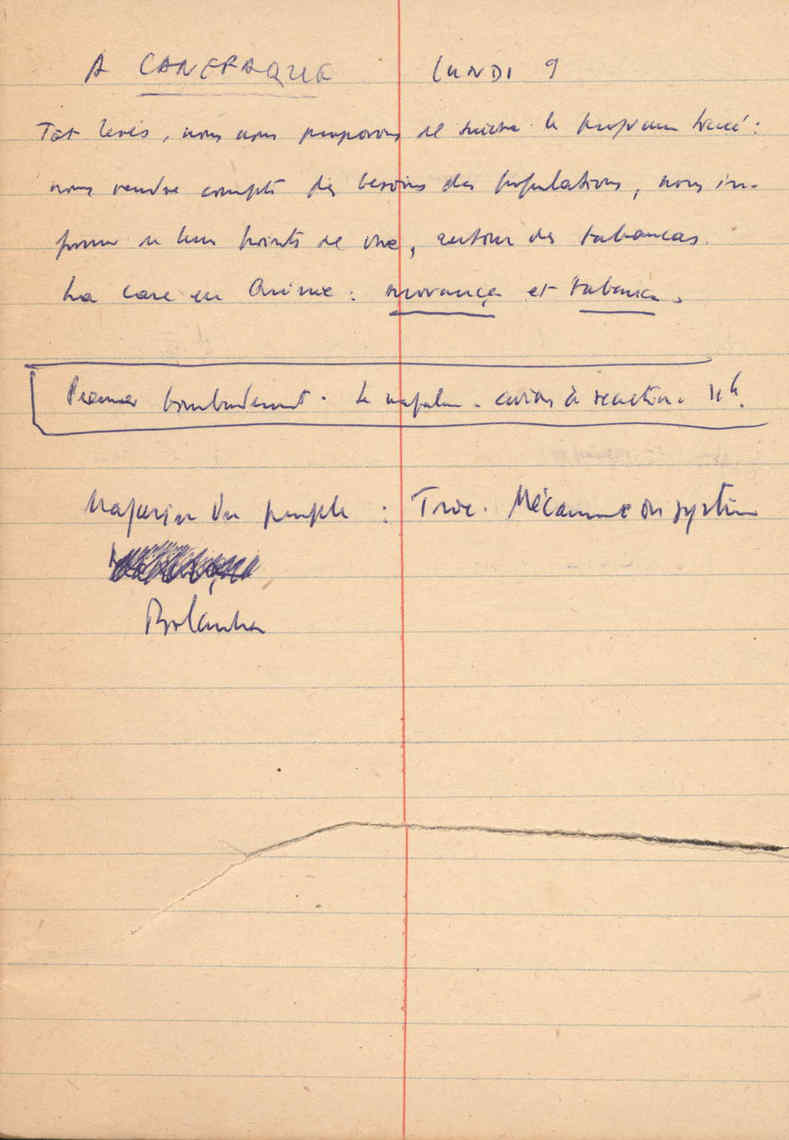 A CANEFAQUE LUNDI 9
Tôt levés, nous nous proposons de suivre le programme tracé :
nous rendre compte des besoins des populations, nous in-
former de leurs points de vue, autour des tabancas.
La case en Guinée : morança et tabanca.
Premier bombardement. Le napalm. avions à réaction.
Magasin du peuple : Troc. Mécanisme du système
Bolanha